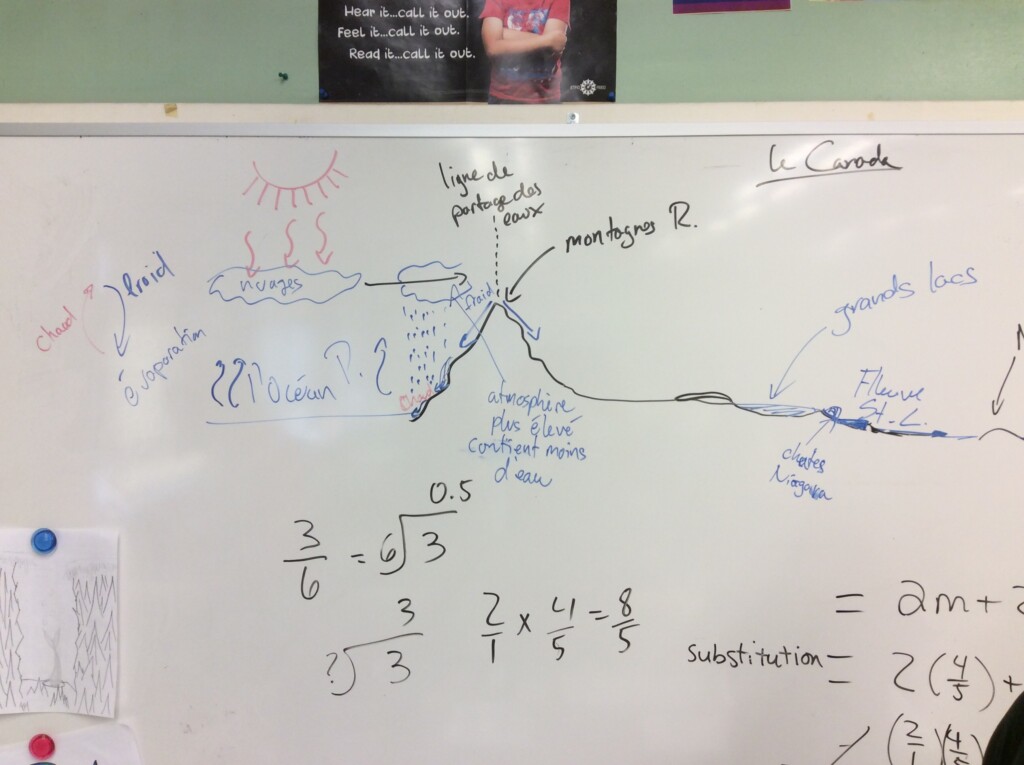 Hear it...call it out.
Feel it...call it out.
Read it...call it out.
le Canada
ligne de
partage des
eaux
montagnes R.
nuages
froid
froid
chaud
évaporation
l'océan P.
chaud
atmosphère
plus élevé
contient moins
d'eau
grands lacs
Fleuve
St-L.
chutes
Niagara
0.5
3/6 = 6⟌3
3
?⟌3
2/1 × 4/5 = 8/5
= 2m+2
substitution = 2(4/5)+
(2/1)(4/5)